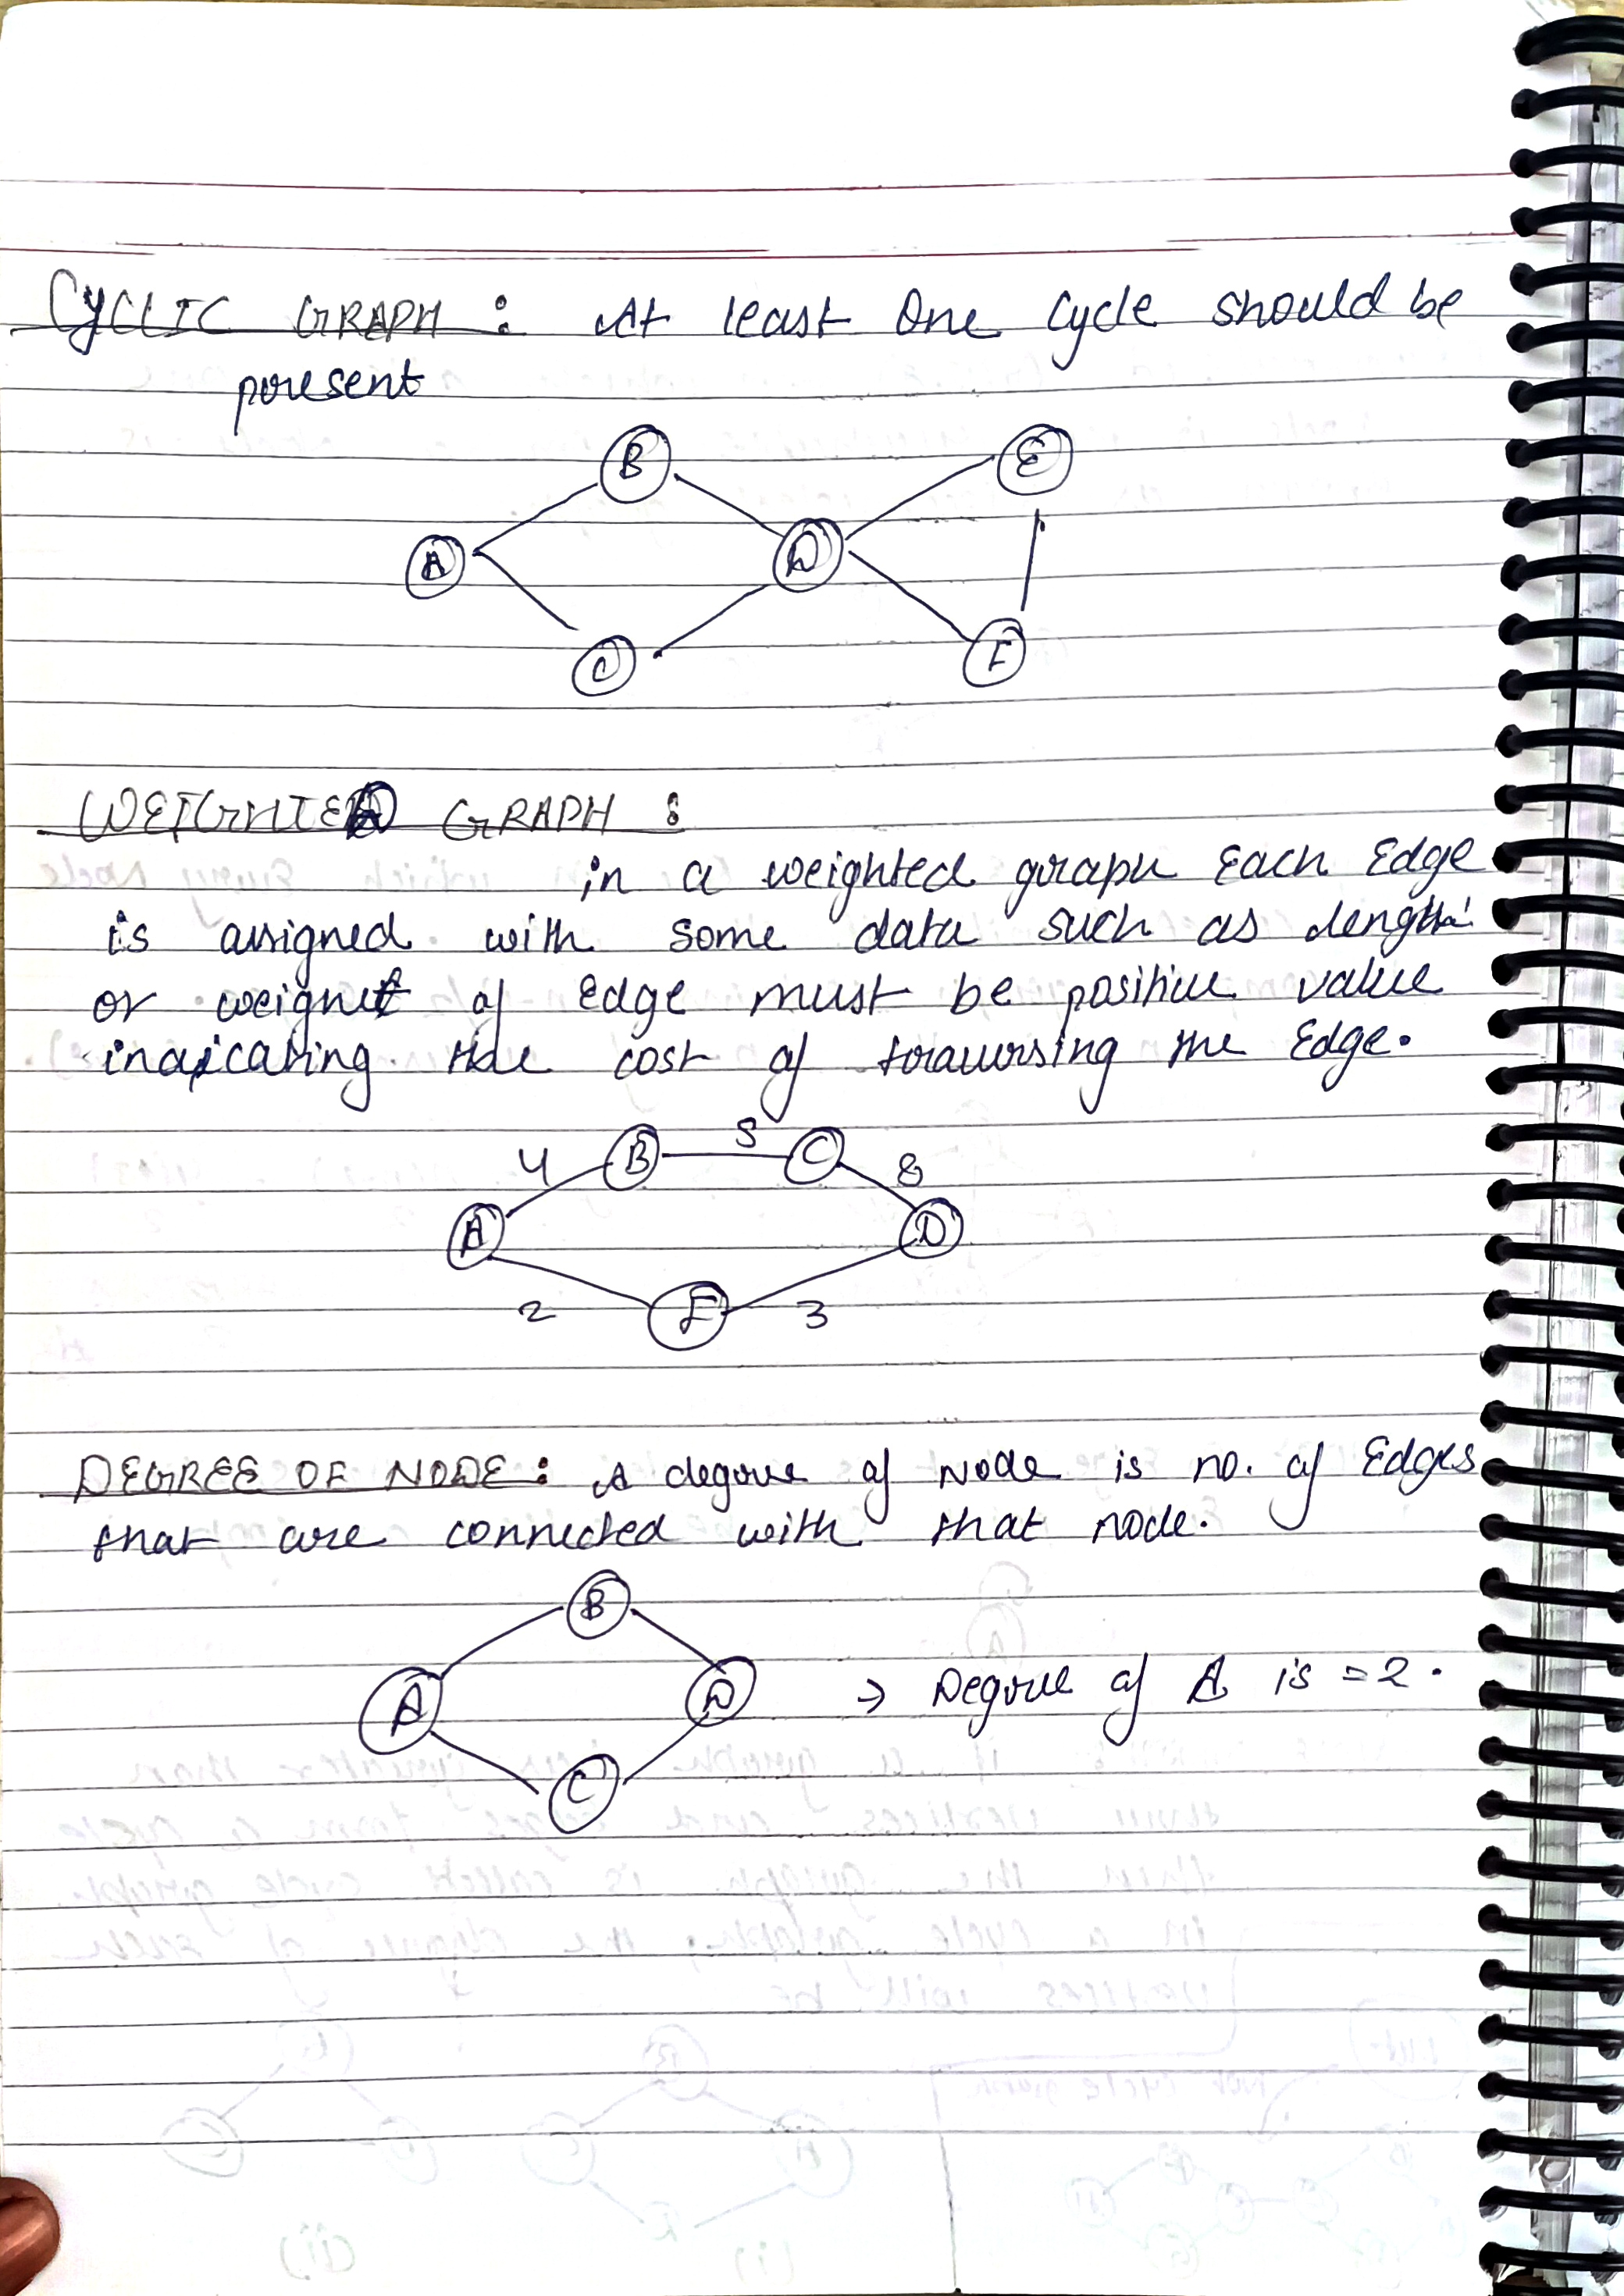 CYCLIC GRAPH : At least One Cycle should be
present
B
E
A
D
F
C
WEIGHTED GRAPH :
in a weighted graph Each Edge
is assigned with some data such as length
or weight of Edge must be positive value
indicating the cost of traversing the Edge.
4 B 5 C 8
A D
2 E 3
DEGREE OF NODE : A degree of Node is no. of Edges
that are connected with that node.
B
A D → Degree of A is = 2.
C